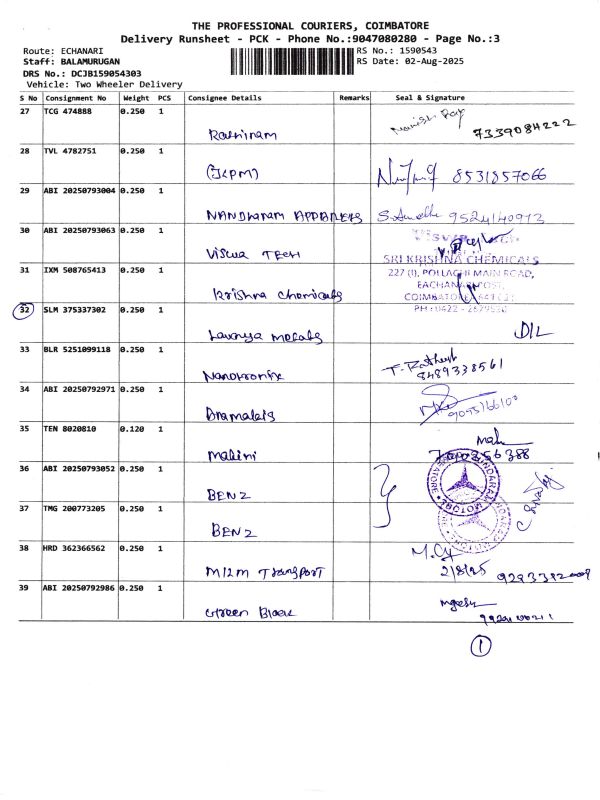 THE PROFESSIONAL COURIERS, COIMBATORE
Delivery Runsheet - PCK - Phone No.:9047080280 - Page No.:3
Route: ECHANARI
Staff: BALAMURUGAN
DRS No.: DCJB159054303
Vehicle: Two Wheeler Delivery
RS No.: 1590543
RS Date: 02-Aug-2025
S No Consignment No Weight PCS Consignee Details Remarks Seal & Signature
27 TCG 474888 0.250 1
Rathinam 7339084222
28 TVL 4782751 0.250 1
(JKPM) 8531857066
29 ABI 20250793004 0.250 1
NANDHARAM 9524140973
30 ABI 20250793063 0.250 1
Viswa TECH
31 IXM 508765413 0.250 1
Krishna chemicals
SRI KRISHNA CHEMICALS
227 (1), POLLACHI MAIN ROAD,
EACHANARI POST,
COIMBATORE
PH : 0422 - 2679530
32 SLM 375337302 0.250 1
Lavanya metals D/L
33 BLR 5251099118 0.250 1
T. Rathesh
8489338561
34 ABI 20250792971 0.250 1
35 TEN 8020810 0.120 1
Malini
36 ABI 20250793052 0.250 1
BENZ
37 TMG 200773205 0.250 1
BENZ
38 HRD 362366562 0.250 1
Transport 2/8/25
39 ABI 20250792986 0.250 1
Green Black
1